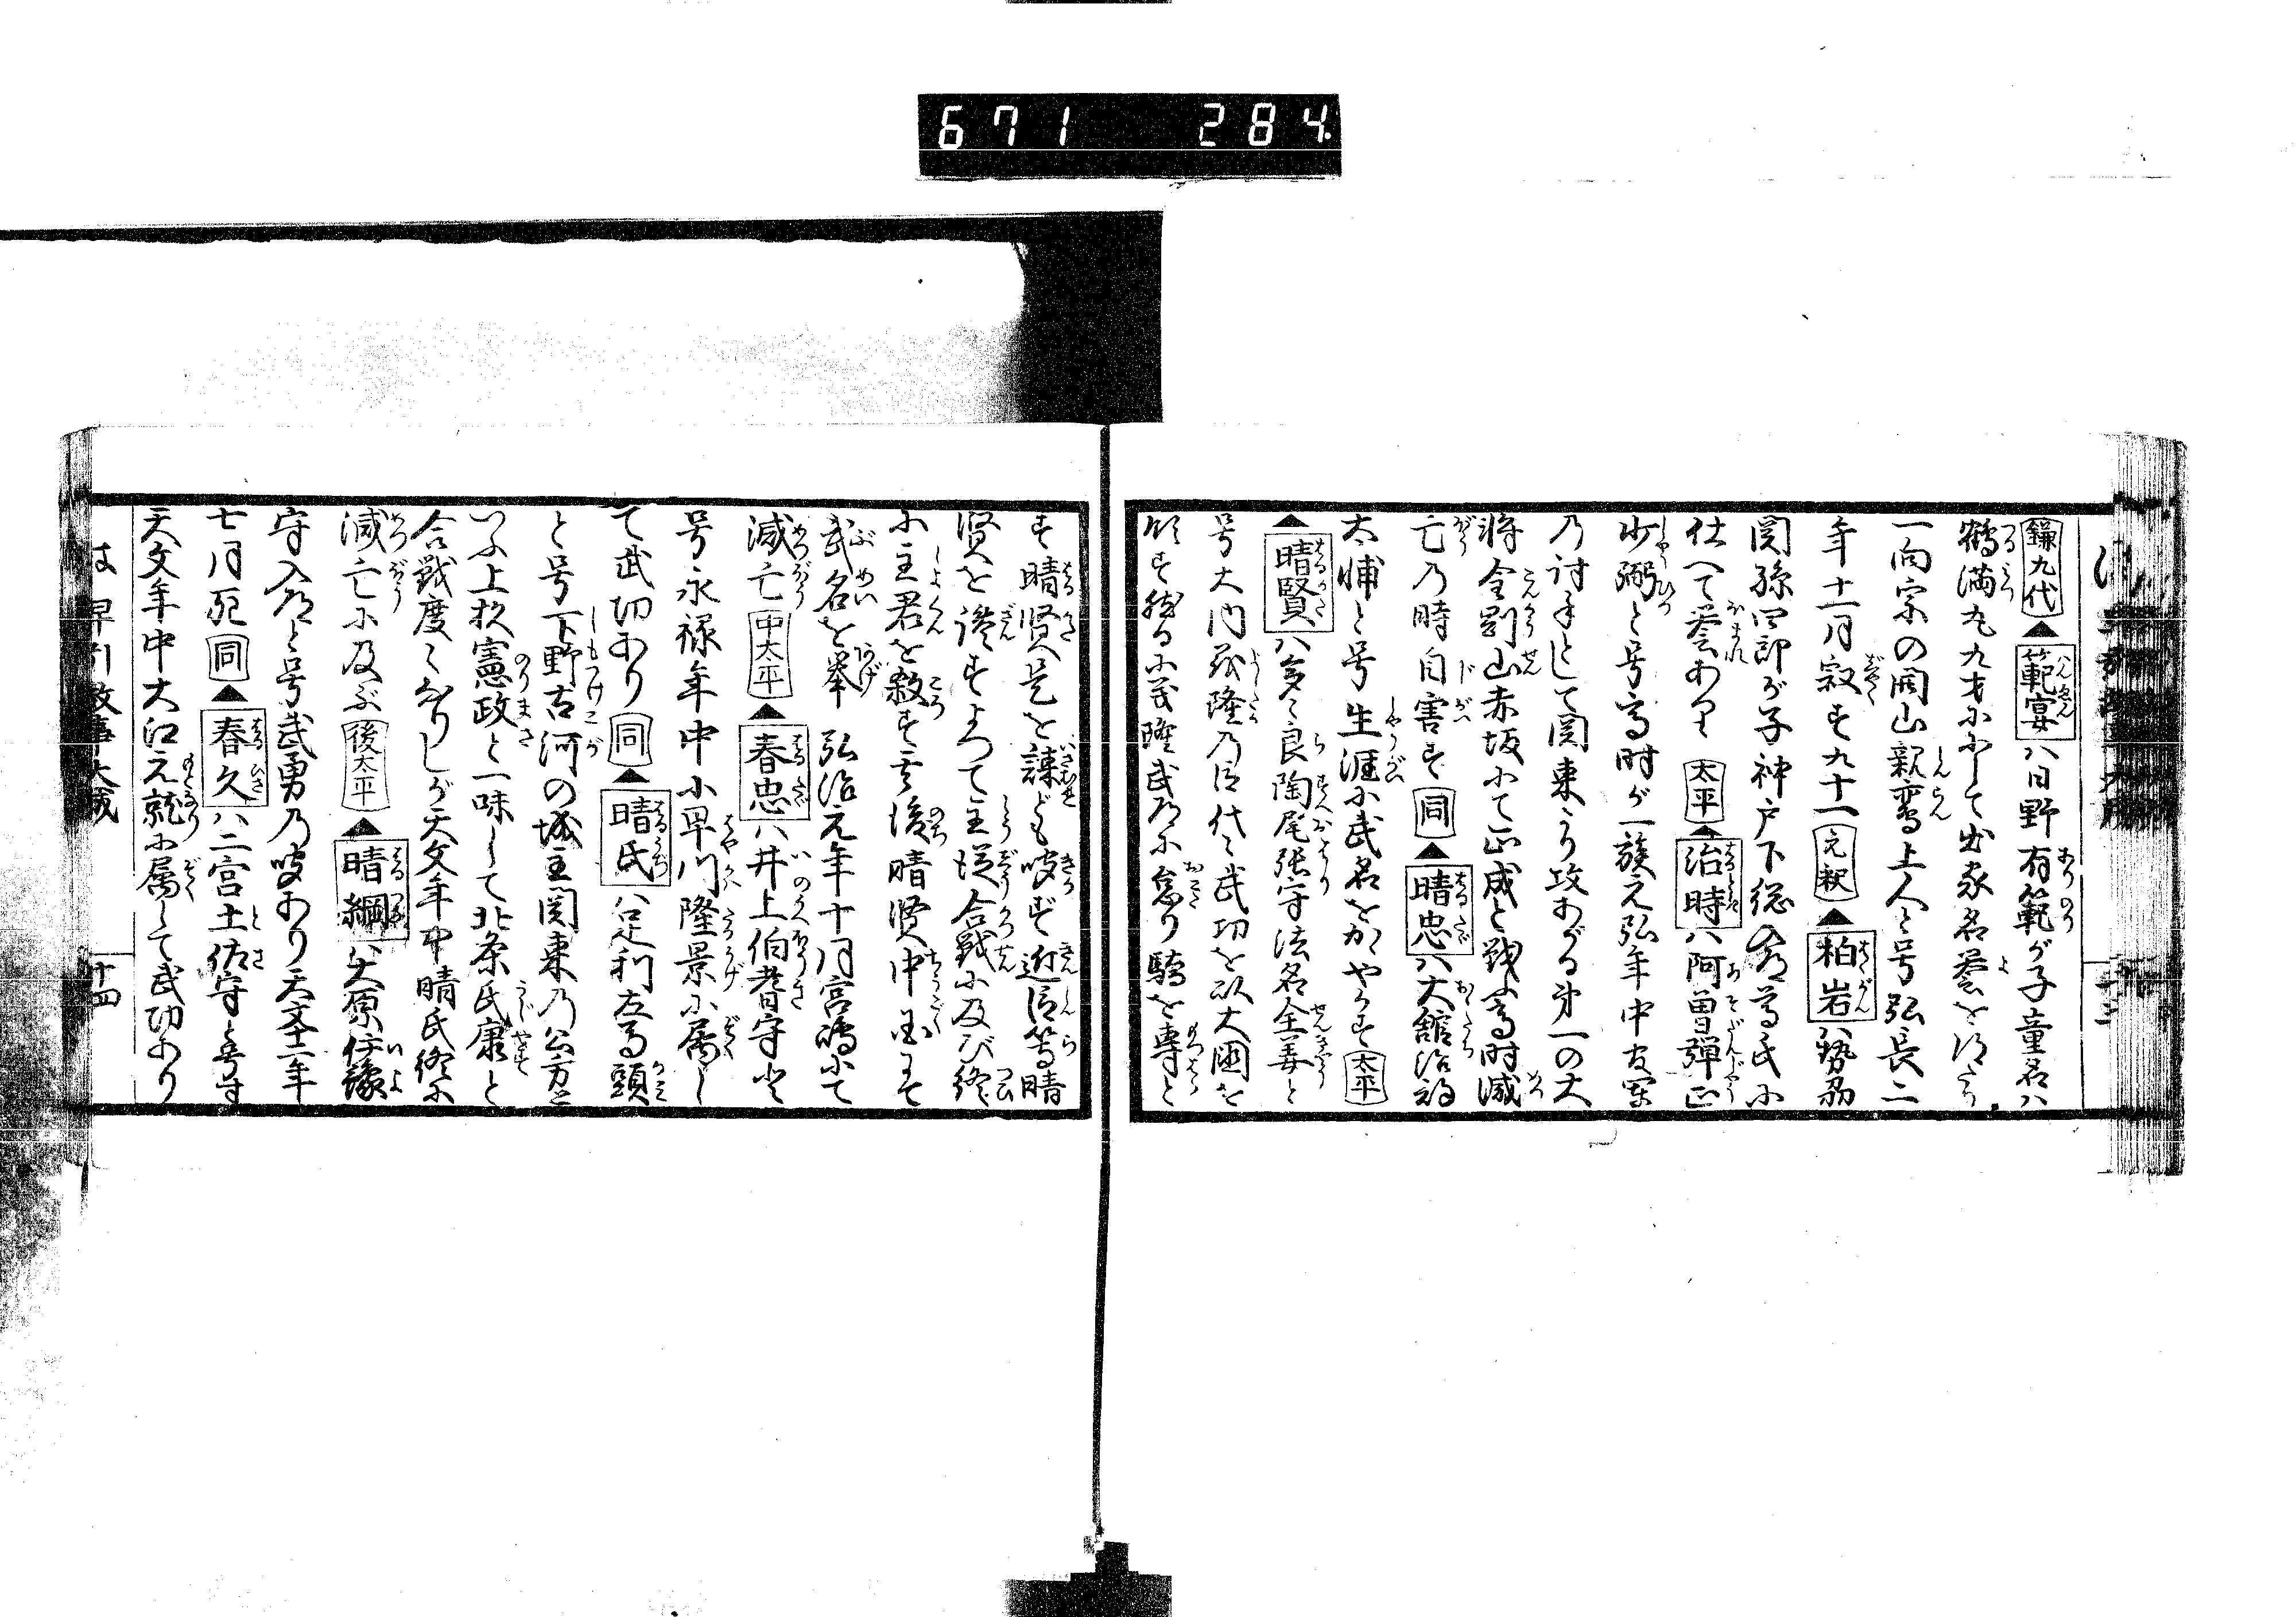 671 284
鎌九代▲範宴ハ日野有範が子童名ハ
鶴満丸九才にして出家名誉を得たり
一向宗の開山親鸞上人と号弘長二
年十一月寂す九十一元釈▲柏岩ハ勢州
関孫四郎が子神戸下総入道尊氏に
仕へて誉あり太平▲治時ハ阿曽弾正
少弼と号高時が一族元弘年中友軍
乃討手として関東より攻あがる第一の大
将金剛山赤坂にて正成と戦ふ高時滅
亡乃時自害す同▲晴忠ハ大舘治部
太輔と号生涯に武名をかゞやかす太平
▲晴賢ハ多々良陶尾張守法名全姜と
号大内義隆乃臣代々武功を以大国を
領す然るに義隆武道に怠り驕を専と
す晴賢是を諫ども聴ず近臣等晴
賢を讒すよつて主従合戦に及び終
に主君を殺す其後晴賢中国にて
武名を挙弘治元年十月宮嶋にて
滅亡中太平▲春忠ハ井上伯耆守と
号永禄年中小早川隆景に属し
て武功あり同▲晴氏ハ足利左馬頭
と号下野古河の城主関東乃公方と
いふ上杦憲政と一味して北条氏康と
合戦度々なりしが天文年中晴氏終に
滅亡に及ぶ後太平▲晴綱ハ大原伊豫
守入道と号武勇乃聞あり天文十一年
七月死同▲春久ハ二宮土佐守と号す
天文年中大江元就に属して武功あり
は 早引故事大成 十四